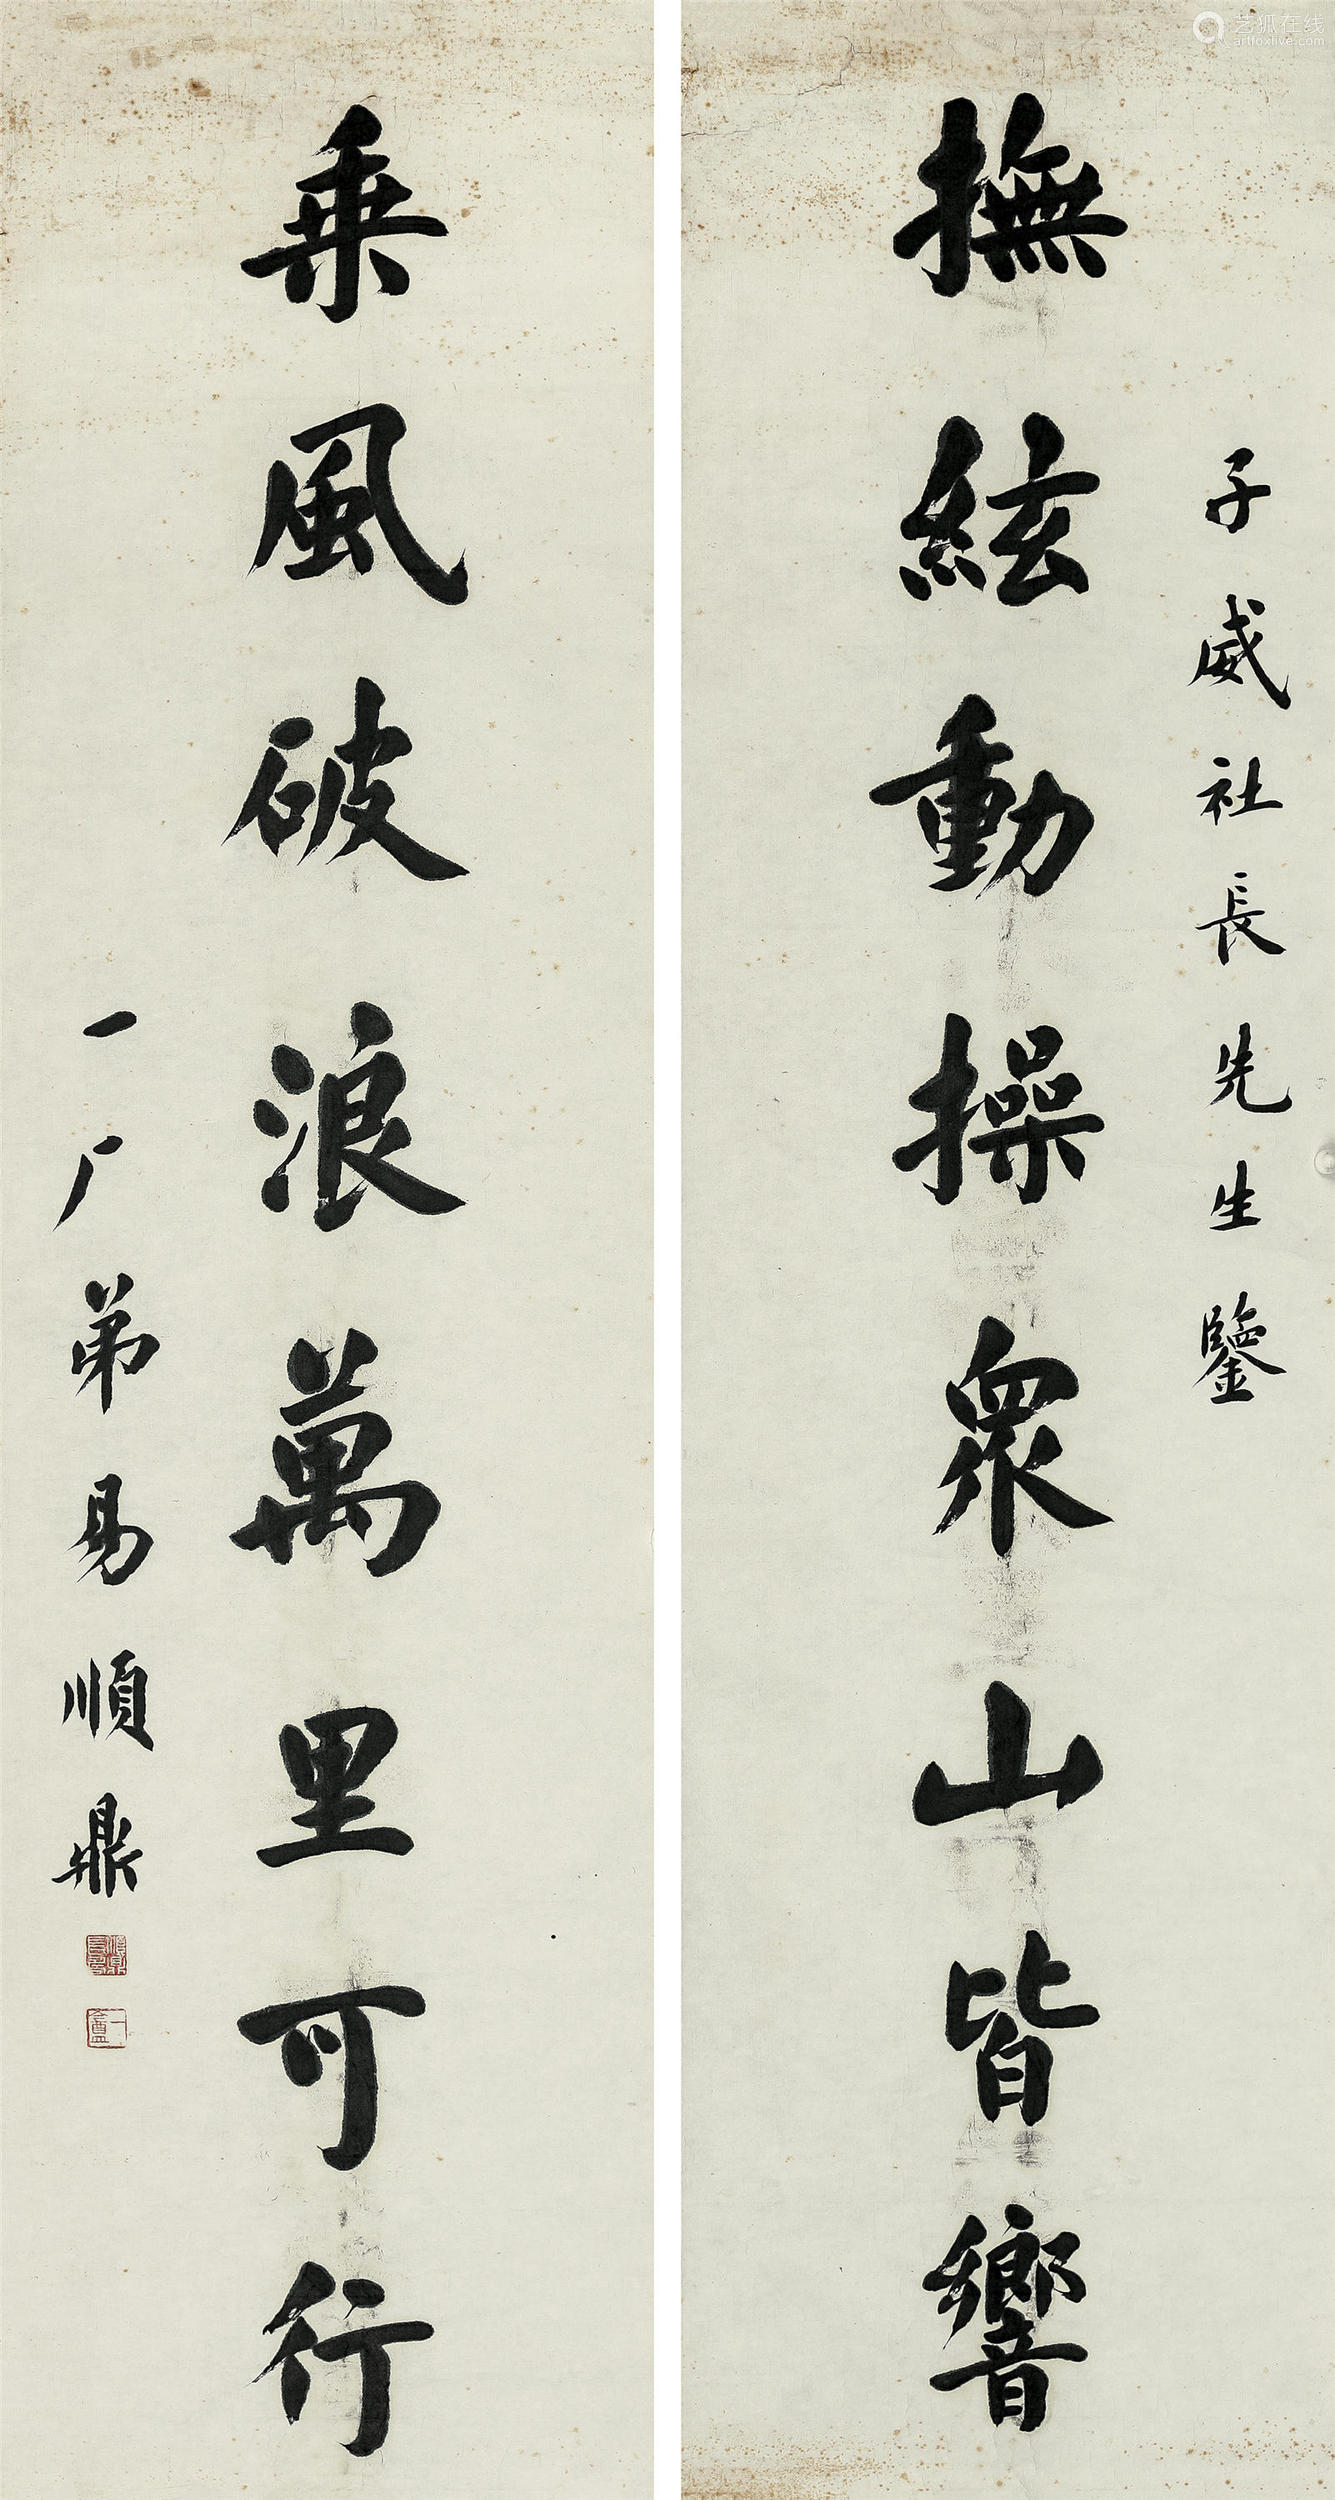 子威社長先生鑒
撫絃動操衆山皆響
乗風破浪萬里可行
一厂弟易順鼎
艺狐在线
artfoxlive.com